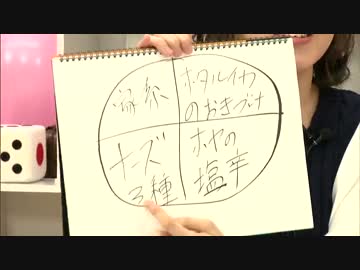 ホタルイカ
のおきづけ
チーズ
3種
ホヤの
塩辛